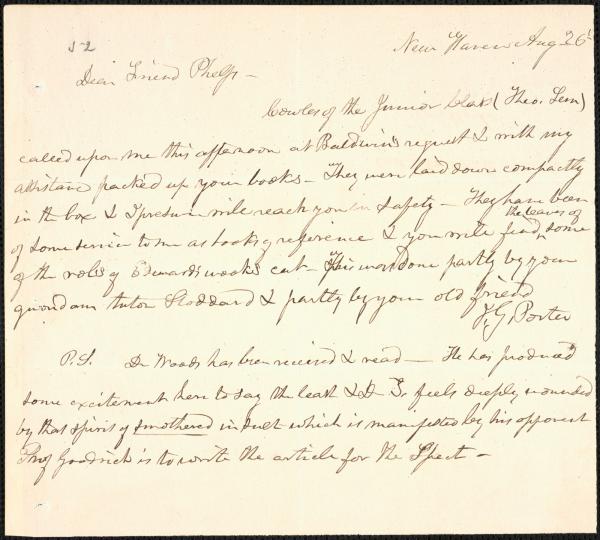 52
New Haven Aug 26
Dear Friend Phelps —
Cowles of the Junior class (Theo. Sem)
called upon me this afternoon at Baldwin's request & with my
assistance packed up your books — They were laid down compactly
in the box & I presume will reach you in safety — They have been
of some service to me as books of reference & you will find the leaves of some
of the vols of Edwards works cut — This was done partly by your
quondam tutor Stoddard & partly by your old friend
J. G. Porter
P.S. Dr Woods has been received & read — He has produced
some excitement here to say the least & Dr T. feels deeply wounded
by that spirit of smothered insult which is manifested by his opponent
Prof Goodrich is to write the article for the Spect —